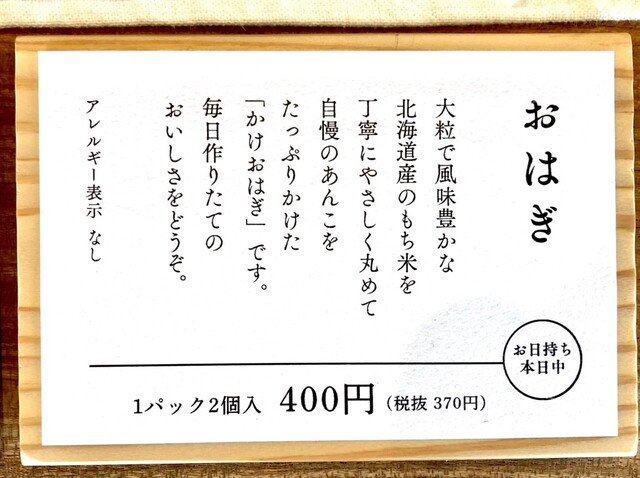 おはぎ
大粒で風味豊かな
北海道産のもち米を
丁寧にやさしく丸めて
自慢のあんこを
たっぷりかけた
「かけおはぎ」です。
毎日作りたての
おいしさをどうぞ。
アレルギー表示 なし
お日持ち
本日中
1パック2個入 400円（税抜 370円）